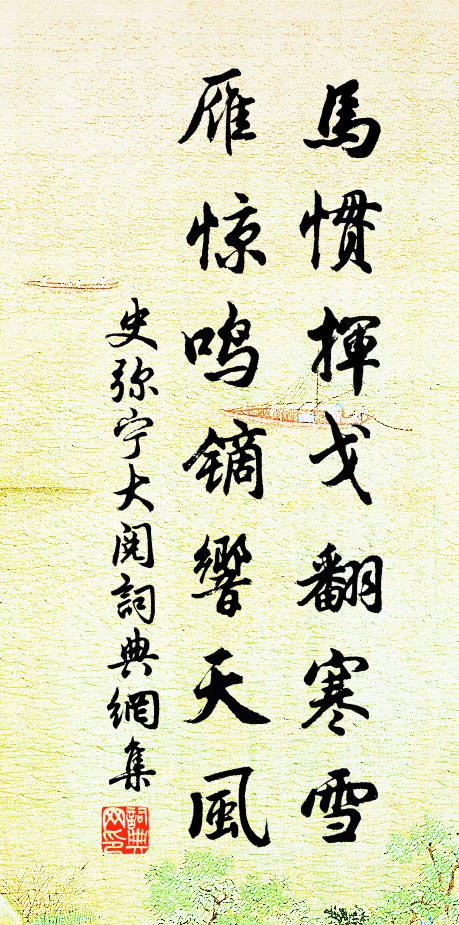 馬慣揮戈翻寒雪
雁惊鸣鏑響天風
史弥宁大阅詞典網集
詞典網印